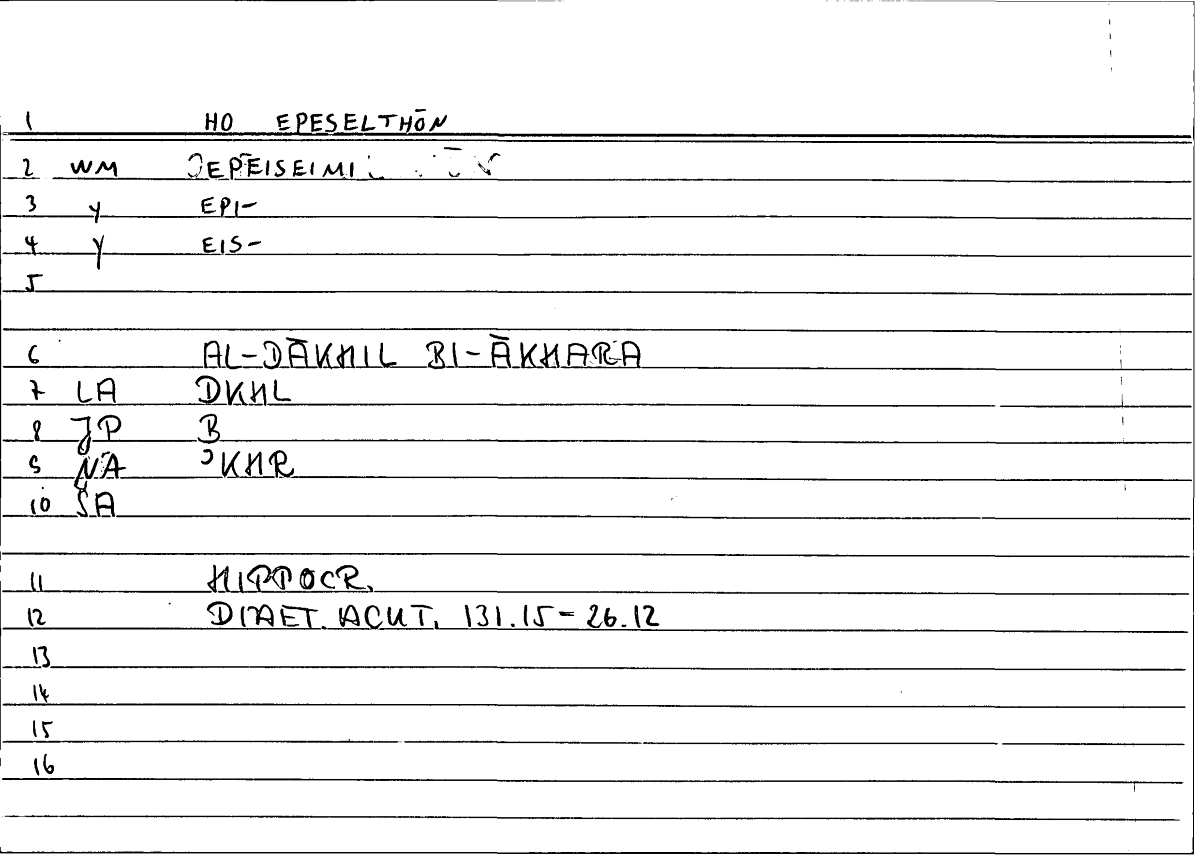 1 HO EPESELTHŌN
2 WM EPEISEIMI
3 Y EPI-
4 Y EIS-
5
6 AL-DĀKHIL BI-ĀKHARA
7 LA DKHL
8 JP B
9 NA ʾKHR
10 ŠA
11 HIPPOCR.
12 DIAET. ACUT. 131.15-26.12
13
14
15
16